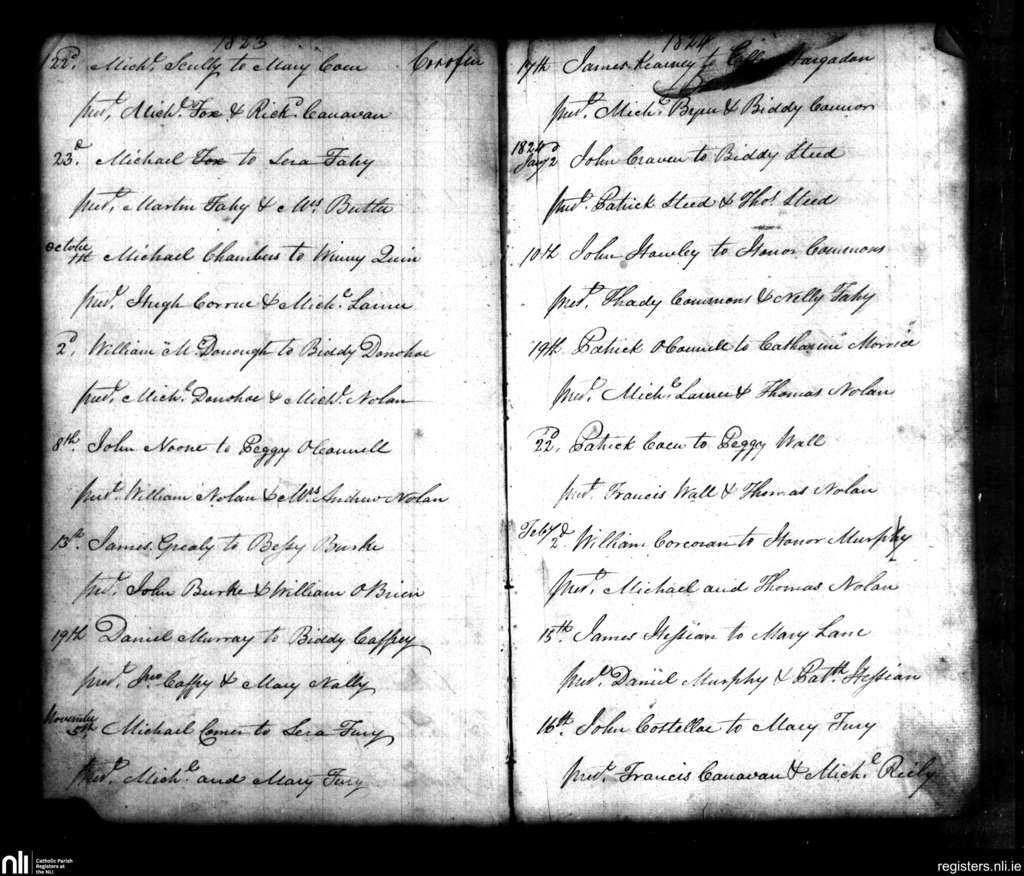 1823
22d. Michl. Scully to Mary Coen Corofin
pret, Michl. Fox & Rickd. Canavan
23d. Michael Fox to Sera Fahy
pret, Martin Fahy & Mrs Butler
October 1st Michael Chambers to Winny Quin
pret. Hugh Corrne & Michl. Larne
2d, William McDonough to Biddy Donohoe
pret, Michl. Donohoe & Michl. Nolan
8th. John Noone to Peggy O'Connell
pret. William Nolan & Mrs Andrew Nolan
13th. James Grealy to Bessy Burke
pret. John Burke & William O'Brien
19th Daniel Murray to Biddy Caffrey
pret. Jno Caffry & Mary Nally
November 5th Michael Comer to Sera Fury
pret. Michl. and Mary Fury
1824
17th James Kearney to Nargadon
pret. Michl. Byan & Biddy Connor
1824 Jany 2d John Craven to Biddy Steed
pret. Patrick Steed & Thos. Steed
10th John Hawley to Honor Commons
pret. Thady Commons & Nelly Fahy
19th Patrick O'Connell to Catharine Morrice
pret. Michl. Larne & Thomas Nolan
22d, Patrick Coen to Peggy Wall
pret. Francis Wall & Thomas Nolan
Feby 2d. William Corcoran to Honor Murphy
pret, Michael and Thomas Nolan
15th. James Hessian to Mary Lane
pret. Daniel Murphy & Patth. Hessian
16th. John Costelloe to Mary Fury
pret. Francis Canavan & Michl. Reily
nli Catholic Parish Registers at the NLI
registers.nli.ie